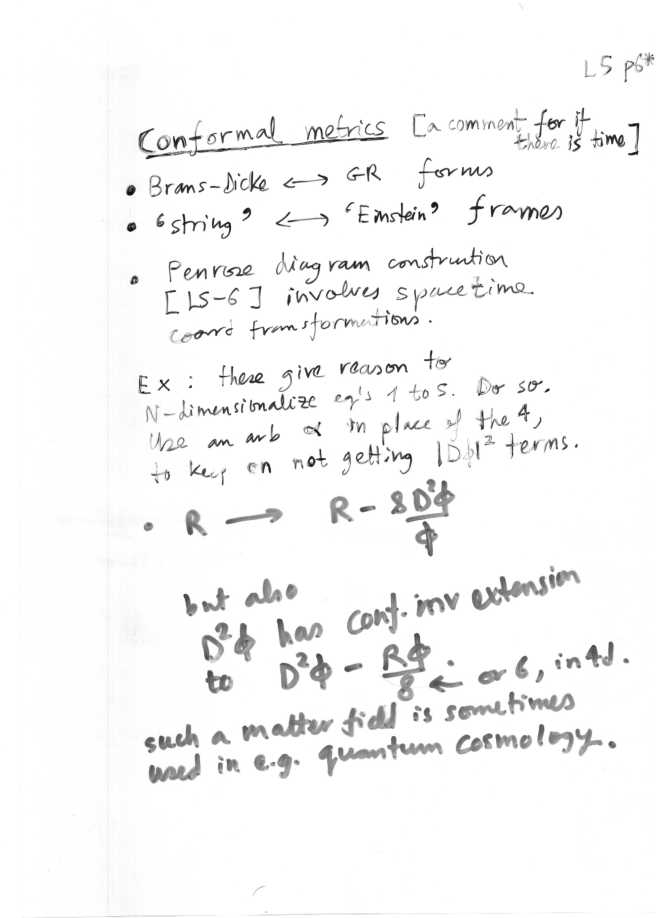 L5 p6*
Conformal metrics [a comment for if
there is time]
• Brans-Dicke ↔ GR forms
• 'string' ↔ 'Einstein' frames
• Penrose diagram construction
[LS-6] involves spacetime
coord transformations.
Ex : these give reason to
N-dimensionalize eq's 1 to 5. Do so.
Use an arb α in place of the 4,
to keep on not getting |Dϕ|² terms.
• R → R - 8 D²ϕ
ϕ
but also
D²ϕ has conf. inv extension
to D²ϕ - Rϕ .
8 ← or 6, in 4d.
such a matter field is sometimes
used in e.g. quantum cosmology.